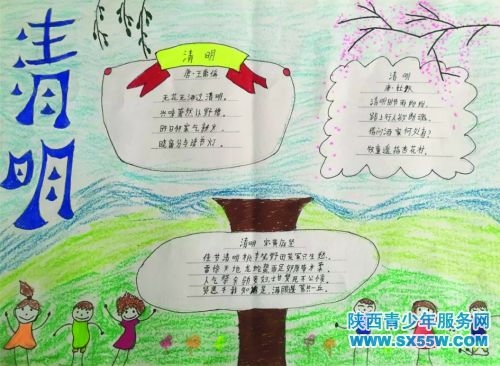 清明
清明
唐·王禹偁
无花无酒过清明，
兴味萧然似野僧。
昨日邻家乞新火，
晓窗分与读书灯。
清明
唐·杜牧
清明时节雨纷纷，
路上行人欲断魂。
借问酒家何处有？
牧童遥指杏花村。
清明 宋黄庭坚
佳节清明桃李笑野田荒冢只生愁.
雷惊天地龙蛇蛰雨足郊原草木柔.
人乞祭余骄妾妇士甘焚死不公侯
贤愚千载知谁是,满眼蓬蒿共一丘.
陕西青少年服务网
www.sx55w.com